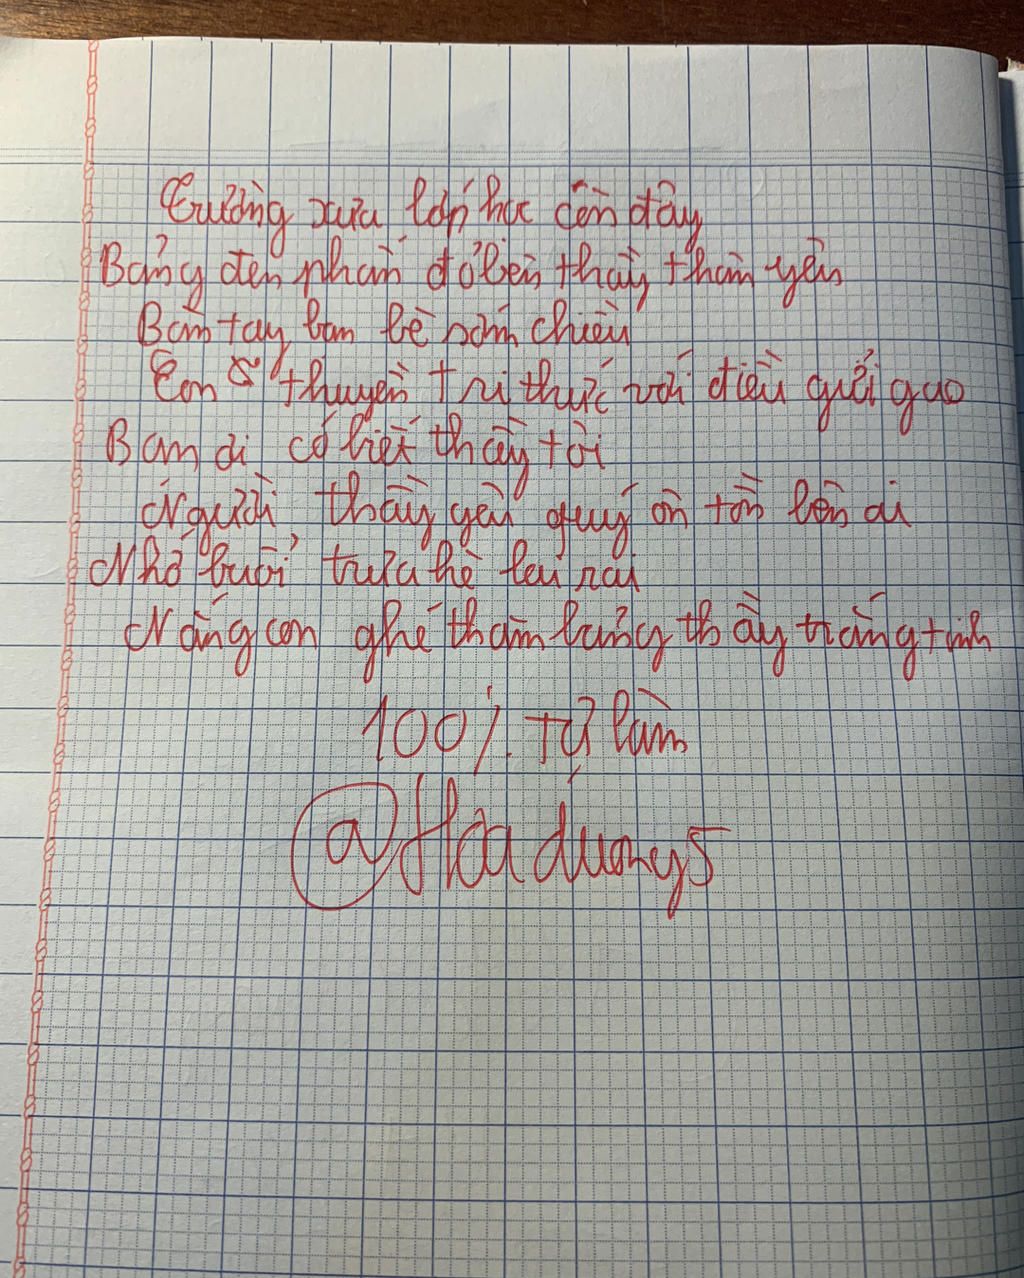 Trường xưa lớp học còn đây
Bảng đen phấn đỏ bên thầy thầm yên
Bàn tay bạn bè sớm chiều
Con thuyền tri thức với điều gửi gao
Bạn ơi có biết thầy tôi
Người thầy yêu quý ôn tồn bên ai
Nhớ buổi trưa hè lai rai
Nắng con ghé thăm bảng thầy trắng tinh
100% Tự làm
@Hoa dương5